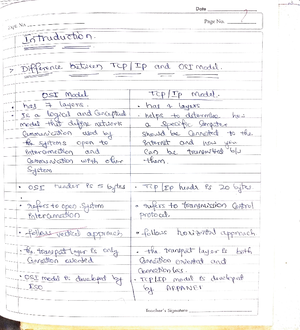 Date
Page No.
Page No. 2
Introduction.
> Difference between TCP/Ip and OSI model.
OSI Model
TCP/Ip Model.
• has 7 layers.
• has 4 layers
• Is a logical and Conceptual
• helps to determine how
model that define network
a Specific Computer
Communication used by
Should be Connected to the
the systems open to
Internet and how you
Interconnection and
can be transmitted b/w
Communication with other
them.
System
• OSI header is 5 bytes
• TCP/Ip header is 20 bytes
• refers to open System
• refers to Transmission Control
Interconnection
protocol.
• follows vertical approach
• follows horizontal approach
• the transport layer is only
• the transport layer is both
Connection oriented
Connection oriented and
Connection less.
• OSI model is developed by
• TCP/Ip model is developed
ISO
by ARPANET
Teacher's Signature